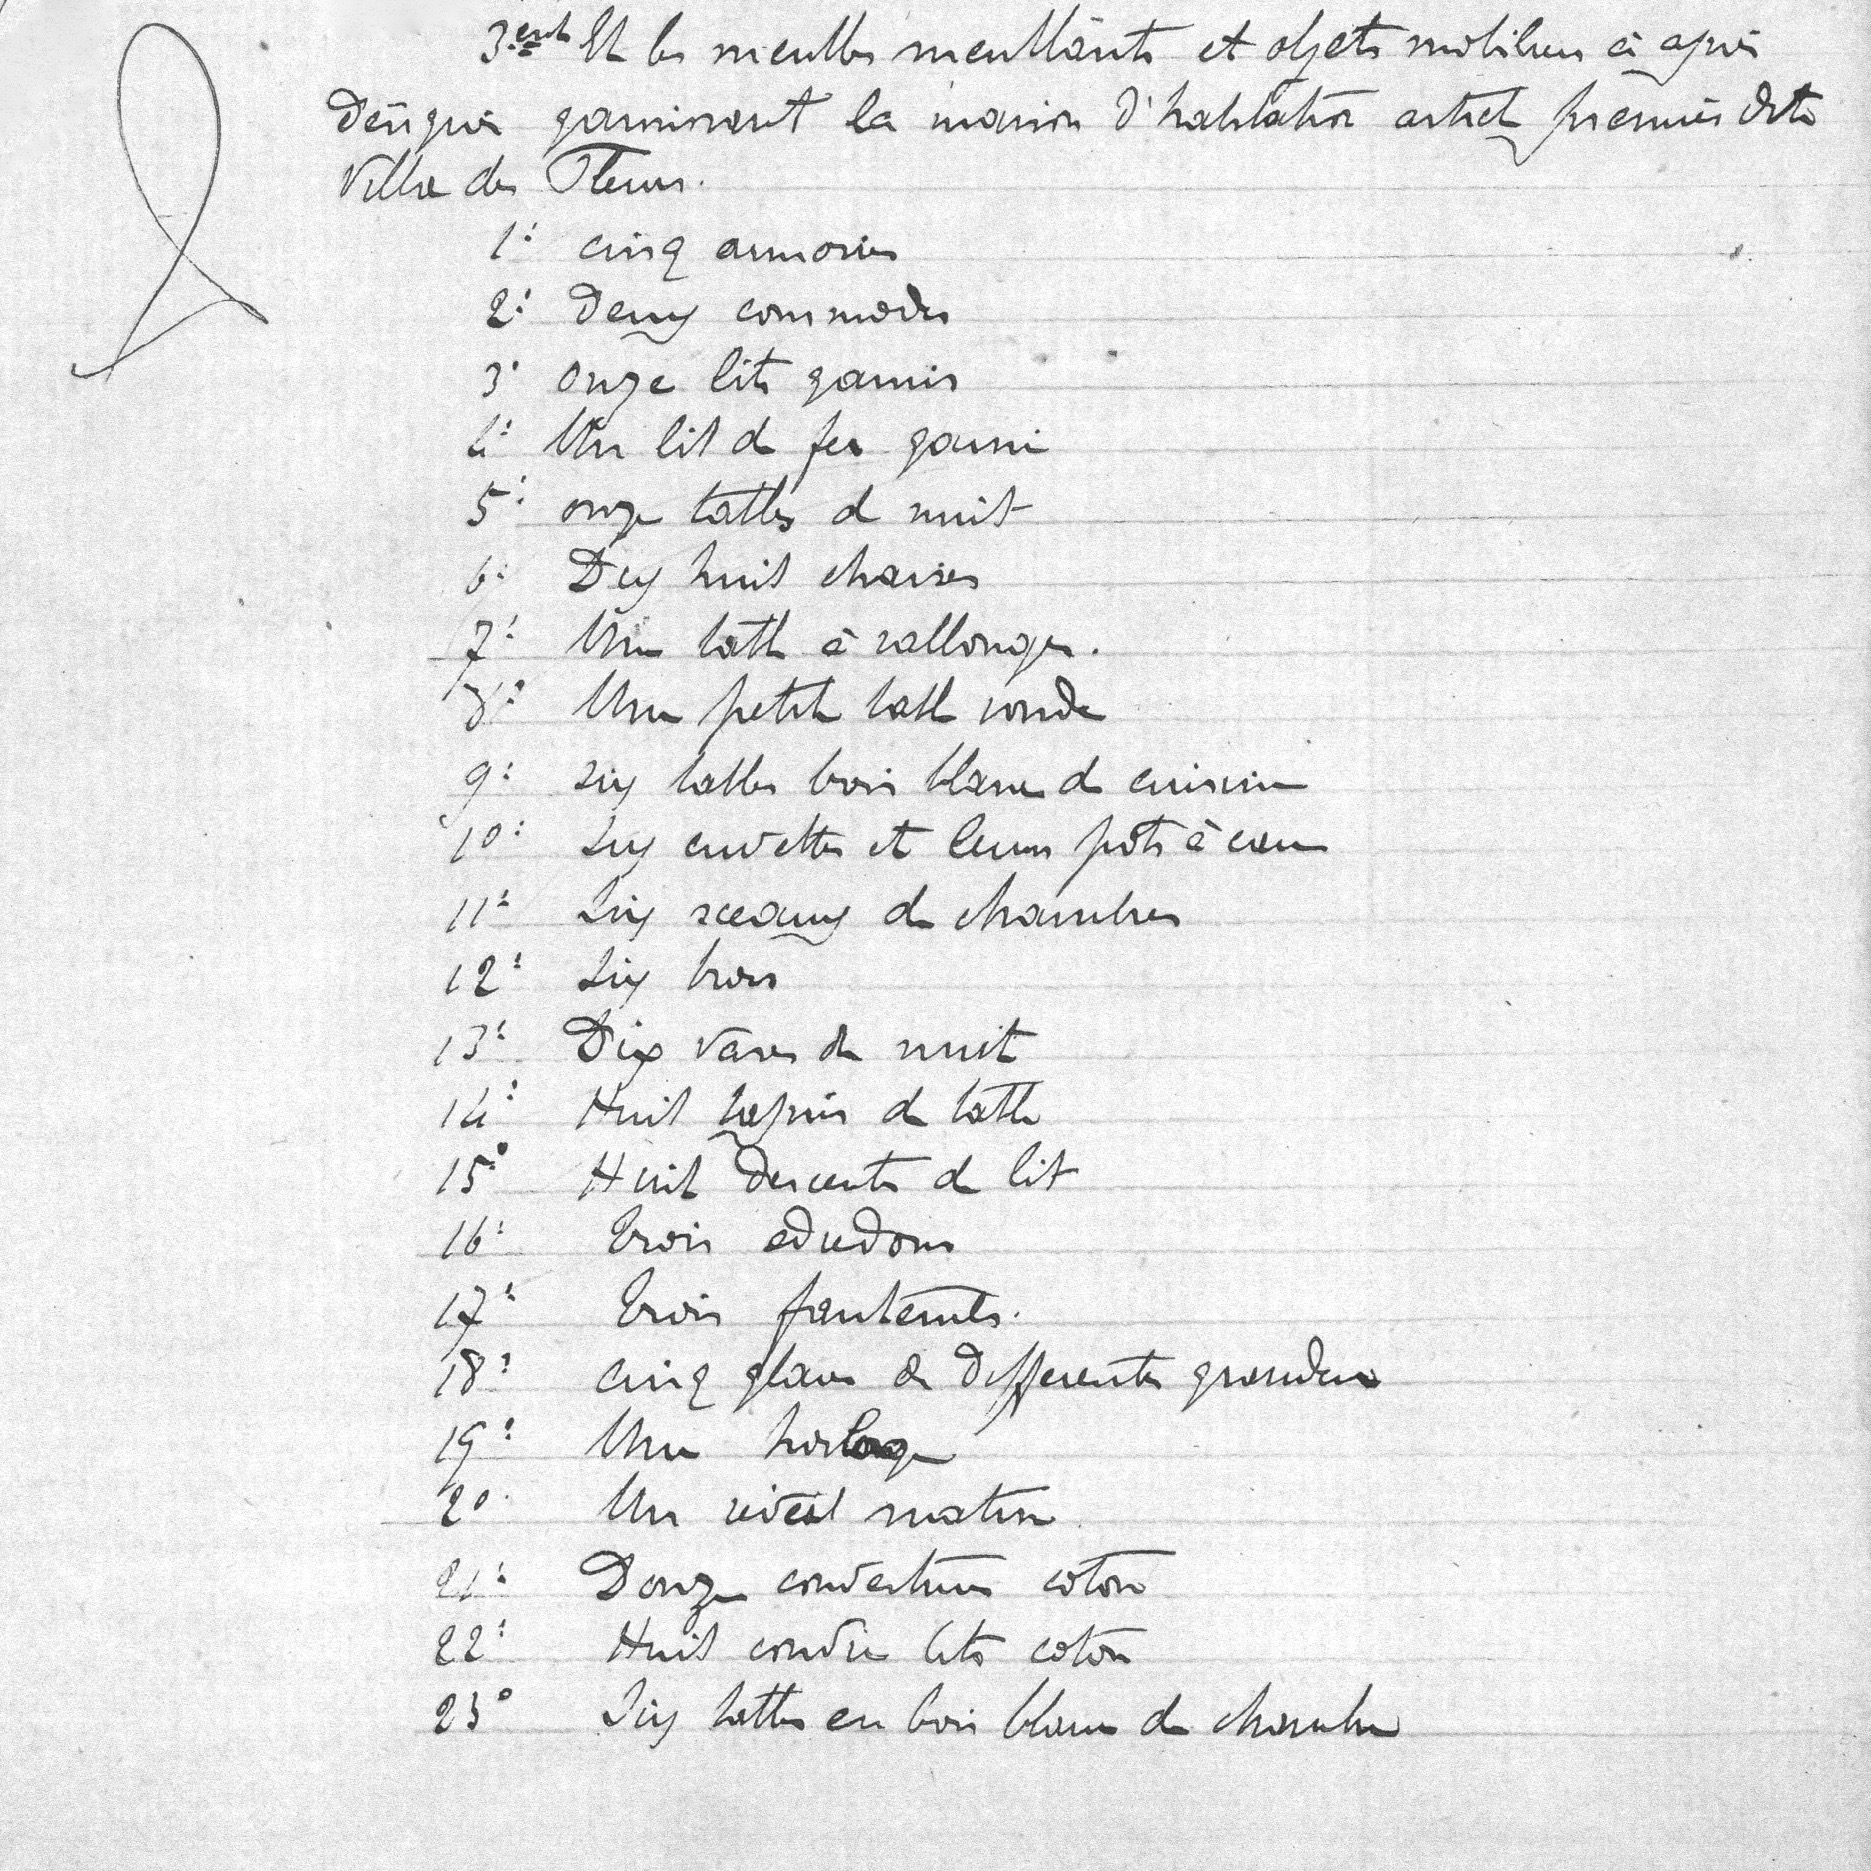 3ent Et les meubles meublants et objets mobiliers ci après
désignés garnissant la maison d'habitation article premier dite
Villa des Fleurs.
1° cinq armoires
2° Deux commodes
3° onze lits garnis
4° Un lit de fer garni
5° onze tables de nuit
6° Dix huit chaises
7° Une table à rallonges.
8° Une petite table ronde
9° six tables bois blanc de cuisine
10° Six cuvettes et leurs pots à eau
11° Six sceaux de chambres
12° Six brocs
13° Dix vases de nuit
14° Huit tapis de table
15° Huit descentes de lit
16° Trois edredons
17° Trois fauteuils.
18° cinq glaces de différentes grandeurs
19° Une horloge
20° Un réveil matin
21° Douze couvertures coton
22° Huit couvre lits coton
23° Six tables en bois blanc de chambre